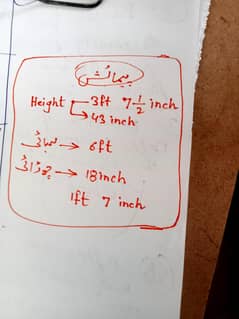 پیمائش
Height → 3ft 7 1/2 inch
→ 43 inch
لمبائی → 6ft
چوڑائی → 18 inch
1ft 7 inch